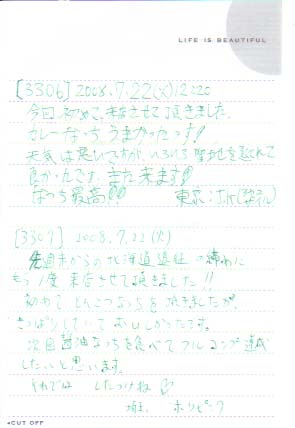 LIFE IS BEAUTIFUL
[3306] 2008.7.22(火)12:20
今回初めて、来店させて頂きました。
カレーなっち うまかったっす!!
天気は悪いですが、いろいろ聖地を巡れて
良かったです。また来ます!!
なっち最高!!
東京:
[3307] 2008.7.22(火)
先週末からの北海道遠征の締めに
もう1度来店させて頂きました!!
初めてとんこつなっちを頂きましたが、
さっぱりしていておいしかったです。
次回醤油なっちを食べてフルコンプ達成
したいと思います。
それでは したっけね♡
埼玉 ホリピーク
◂CUT OFF